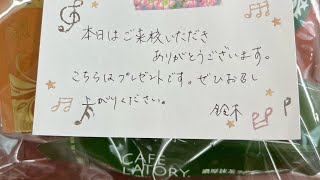 本日はご来校いただき
ありがとうございます。
こちらはプレゼントです。ぜひお召し
上がりください。
鈴木
CAFE
LATORY
濃厚抹茶